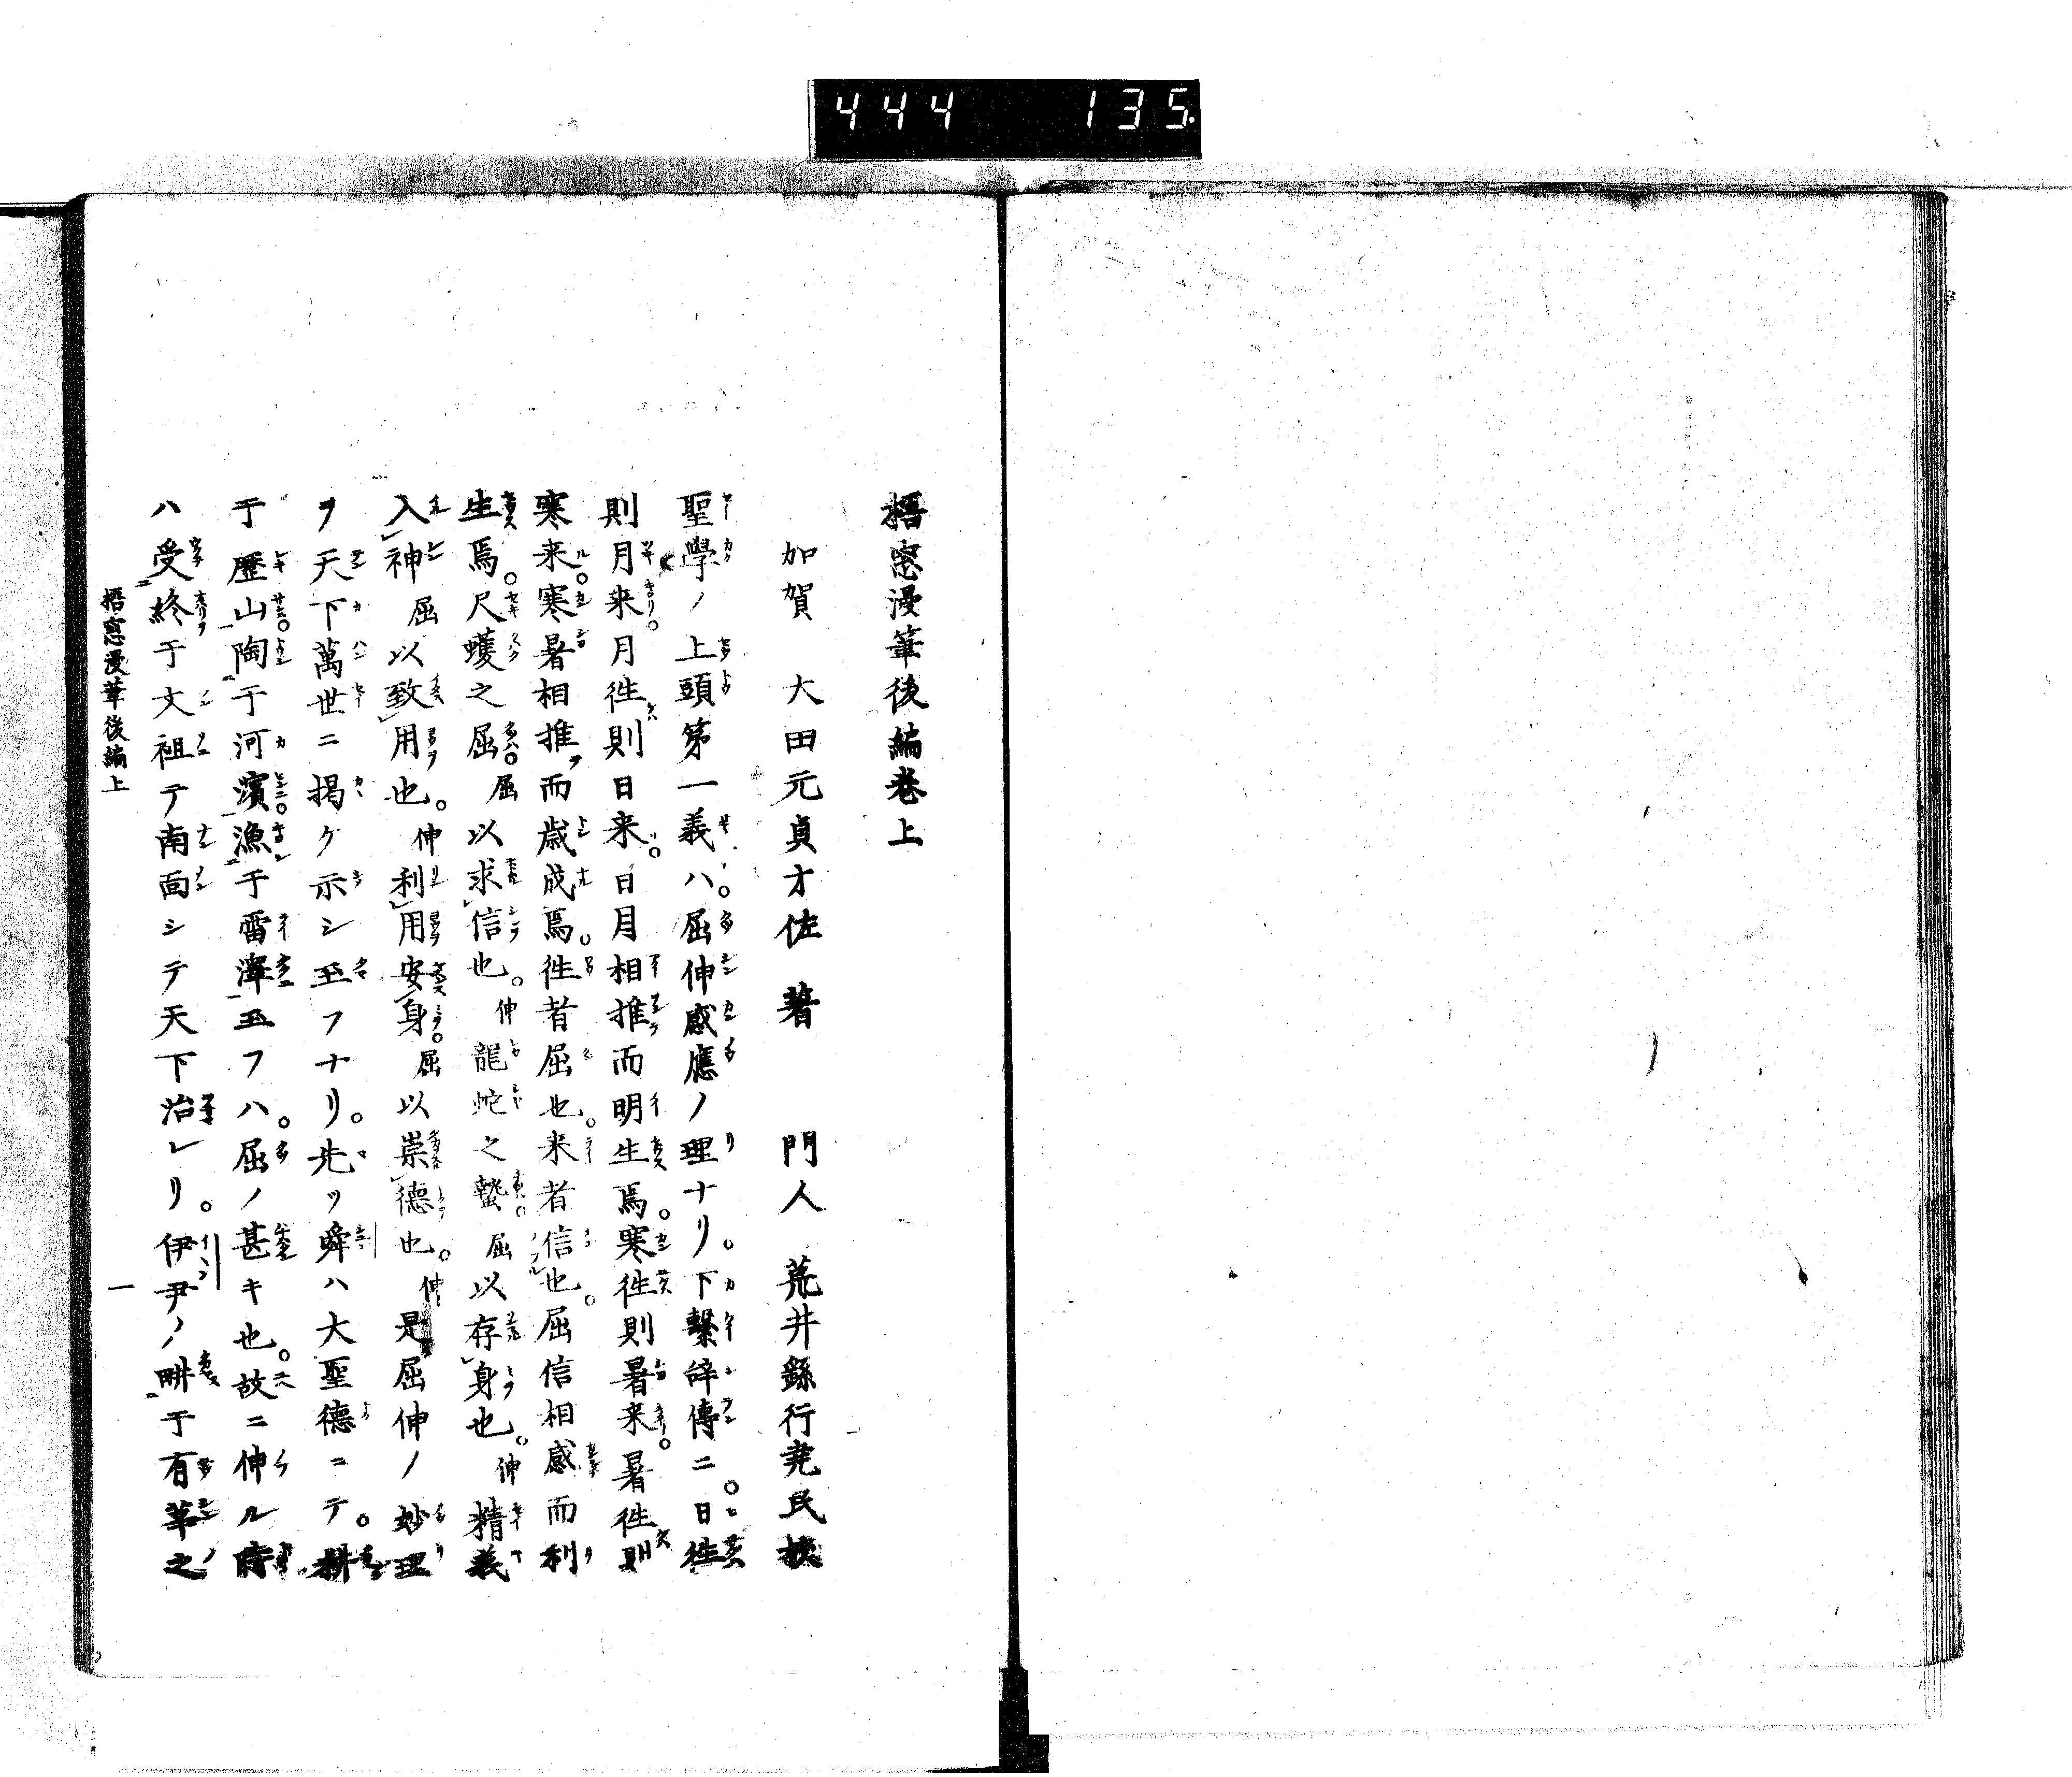 444 135.
梧窓漫筆後編卷上
加賀 大田元貞才佐 著 門人 荒井繇行尭民校
聖學ノ上頭第一義ハ。屈伸感應ノ理ナリ。下繫辞傳ニ。日徃
則月来。月徃則日来。日月相推而明生焉。寒徃則暑来。暑徃則
寒来。寒暑相推而歳成焉。徃者屈也。来者信也。屈信相感而利
生焉。尺蠖之屈。屈以求信也。伸龍蛇之蟄。屈以存身也。伸精義
入神屈以致用也。伸利用安身。屈以崇德也。伸是屈伸ノ妙理
ヲ天下萬世ニ掲ケ示シ玉フナリ。先ツ舜ハ大聖德ニテ。耕
于歷山。陶于河濱。漁于雷澤玉フハ。屈ノ甚キ也。故ニ伸ル時
ハ受終于文祖テ南面シテ天下治レリ。伊尹ノ畊于有莘之
梧窓漫筆後編上
一